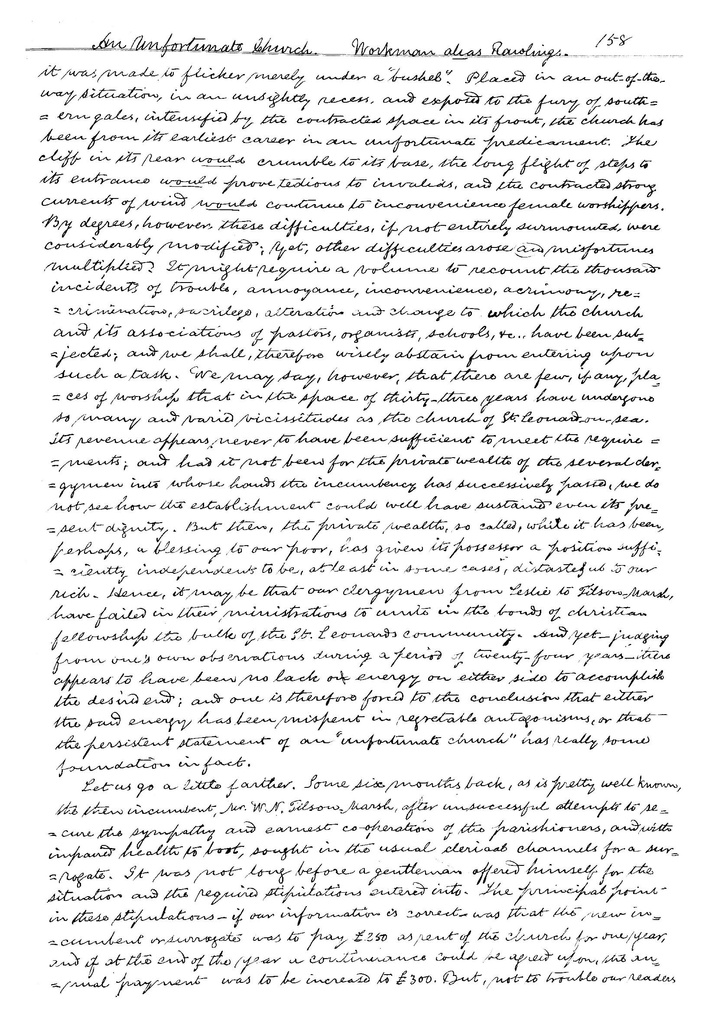 An Unfortunate Church. Workman alias Rawlings. 158
it was made to flicker merely under a "bushel". Placed in an out-of-the-
way situation, in an unsightly recess, and exposed to the fury of south=
=ern gales, intensified by the contracted space in its front, the church has
been from its earliest career in an unfortunate predicament. The
cliff in its rear would crumble to its base, the long flight of steps to
its entrance would prove tedious to invalids, and the contracted strong
currents of wind would continue to inconvenience female worshippers.
By degrees, however these difficulties, if not entirely surmounted, were
considerably modified; yet, other difficulties arose and misfortunes
multiplied. It might require a volume to recount the thousand
incidents of trouble, annoyance, inconvenience, acrimony, re=
=crimination, sacrilege, alteration and change to which the church
and its associations of pastors, organists, schools, &c., have been sub-
=jected; and we shall, therefore wisely abstain from entering upon
such a task. We may say, however, that there are few, if any, pla-
=ces of worship that in the space of thirty-three years have undergone
so many and varied vicissitudes as the church of St Leonard-on-sea.
Its revenue appears never to have been sufficient to meet the require=
=ments; and had it not been for the private wealth of the several cler-
=gymen into whose hands the incumbency has successively passed, we do
not see how the establishment could well have sustaind even its pre-
=sent dignity. But then, the private wealth, so called, while it has been,
perhaps, a blessing to our poor, has given its possessor a position suffi-
=ciently independent to be, at least in some cases, distasteful to our
rich. Hence, it may be that our clergymen from Leslie to Tilson-Marsh,
have failed in their ministrations to unite in the bonds of christian
fellowship the bulk of the St. Leonards community. And yet - judging
from one's own observations during a period of twenty-four years - there
appears to have been no lack of energy on either side to accomplish
the desired end; and one is therefore forced to the conclusion that either
the said energy has been mispent in regretable antagonisms, or that
the persistent statement of an "unfortunate church" has really some
foundation in fact.
Let us go a little farther. Some six months back, as is pretty well known,
the then incumbent, Mr. W. N. Tilson-Marsh, after unsuccessful attempts to se-
=cure the sympathy and earnest co-operation of the parishioners, and with
impaired health to boot, sought in the usual clerical channels for a sur-
=rogate. It was not long before a gentleman offered himself for the
situation and the required stipulations entered into. The principal point
in these stipulations - if our information is correct - was that the new in-
=cumbent or surrogate was to pay £250 as rent of the church for one year,
and if at the end of the year a continuance could be agreed upon, the an-
=nual payment was to be increase to £300. But, not to trouble our readers